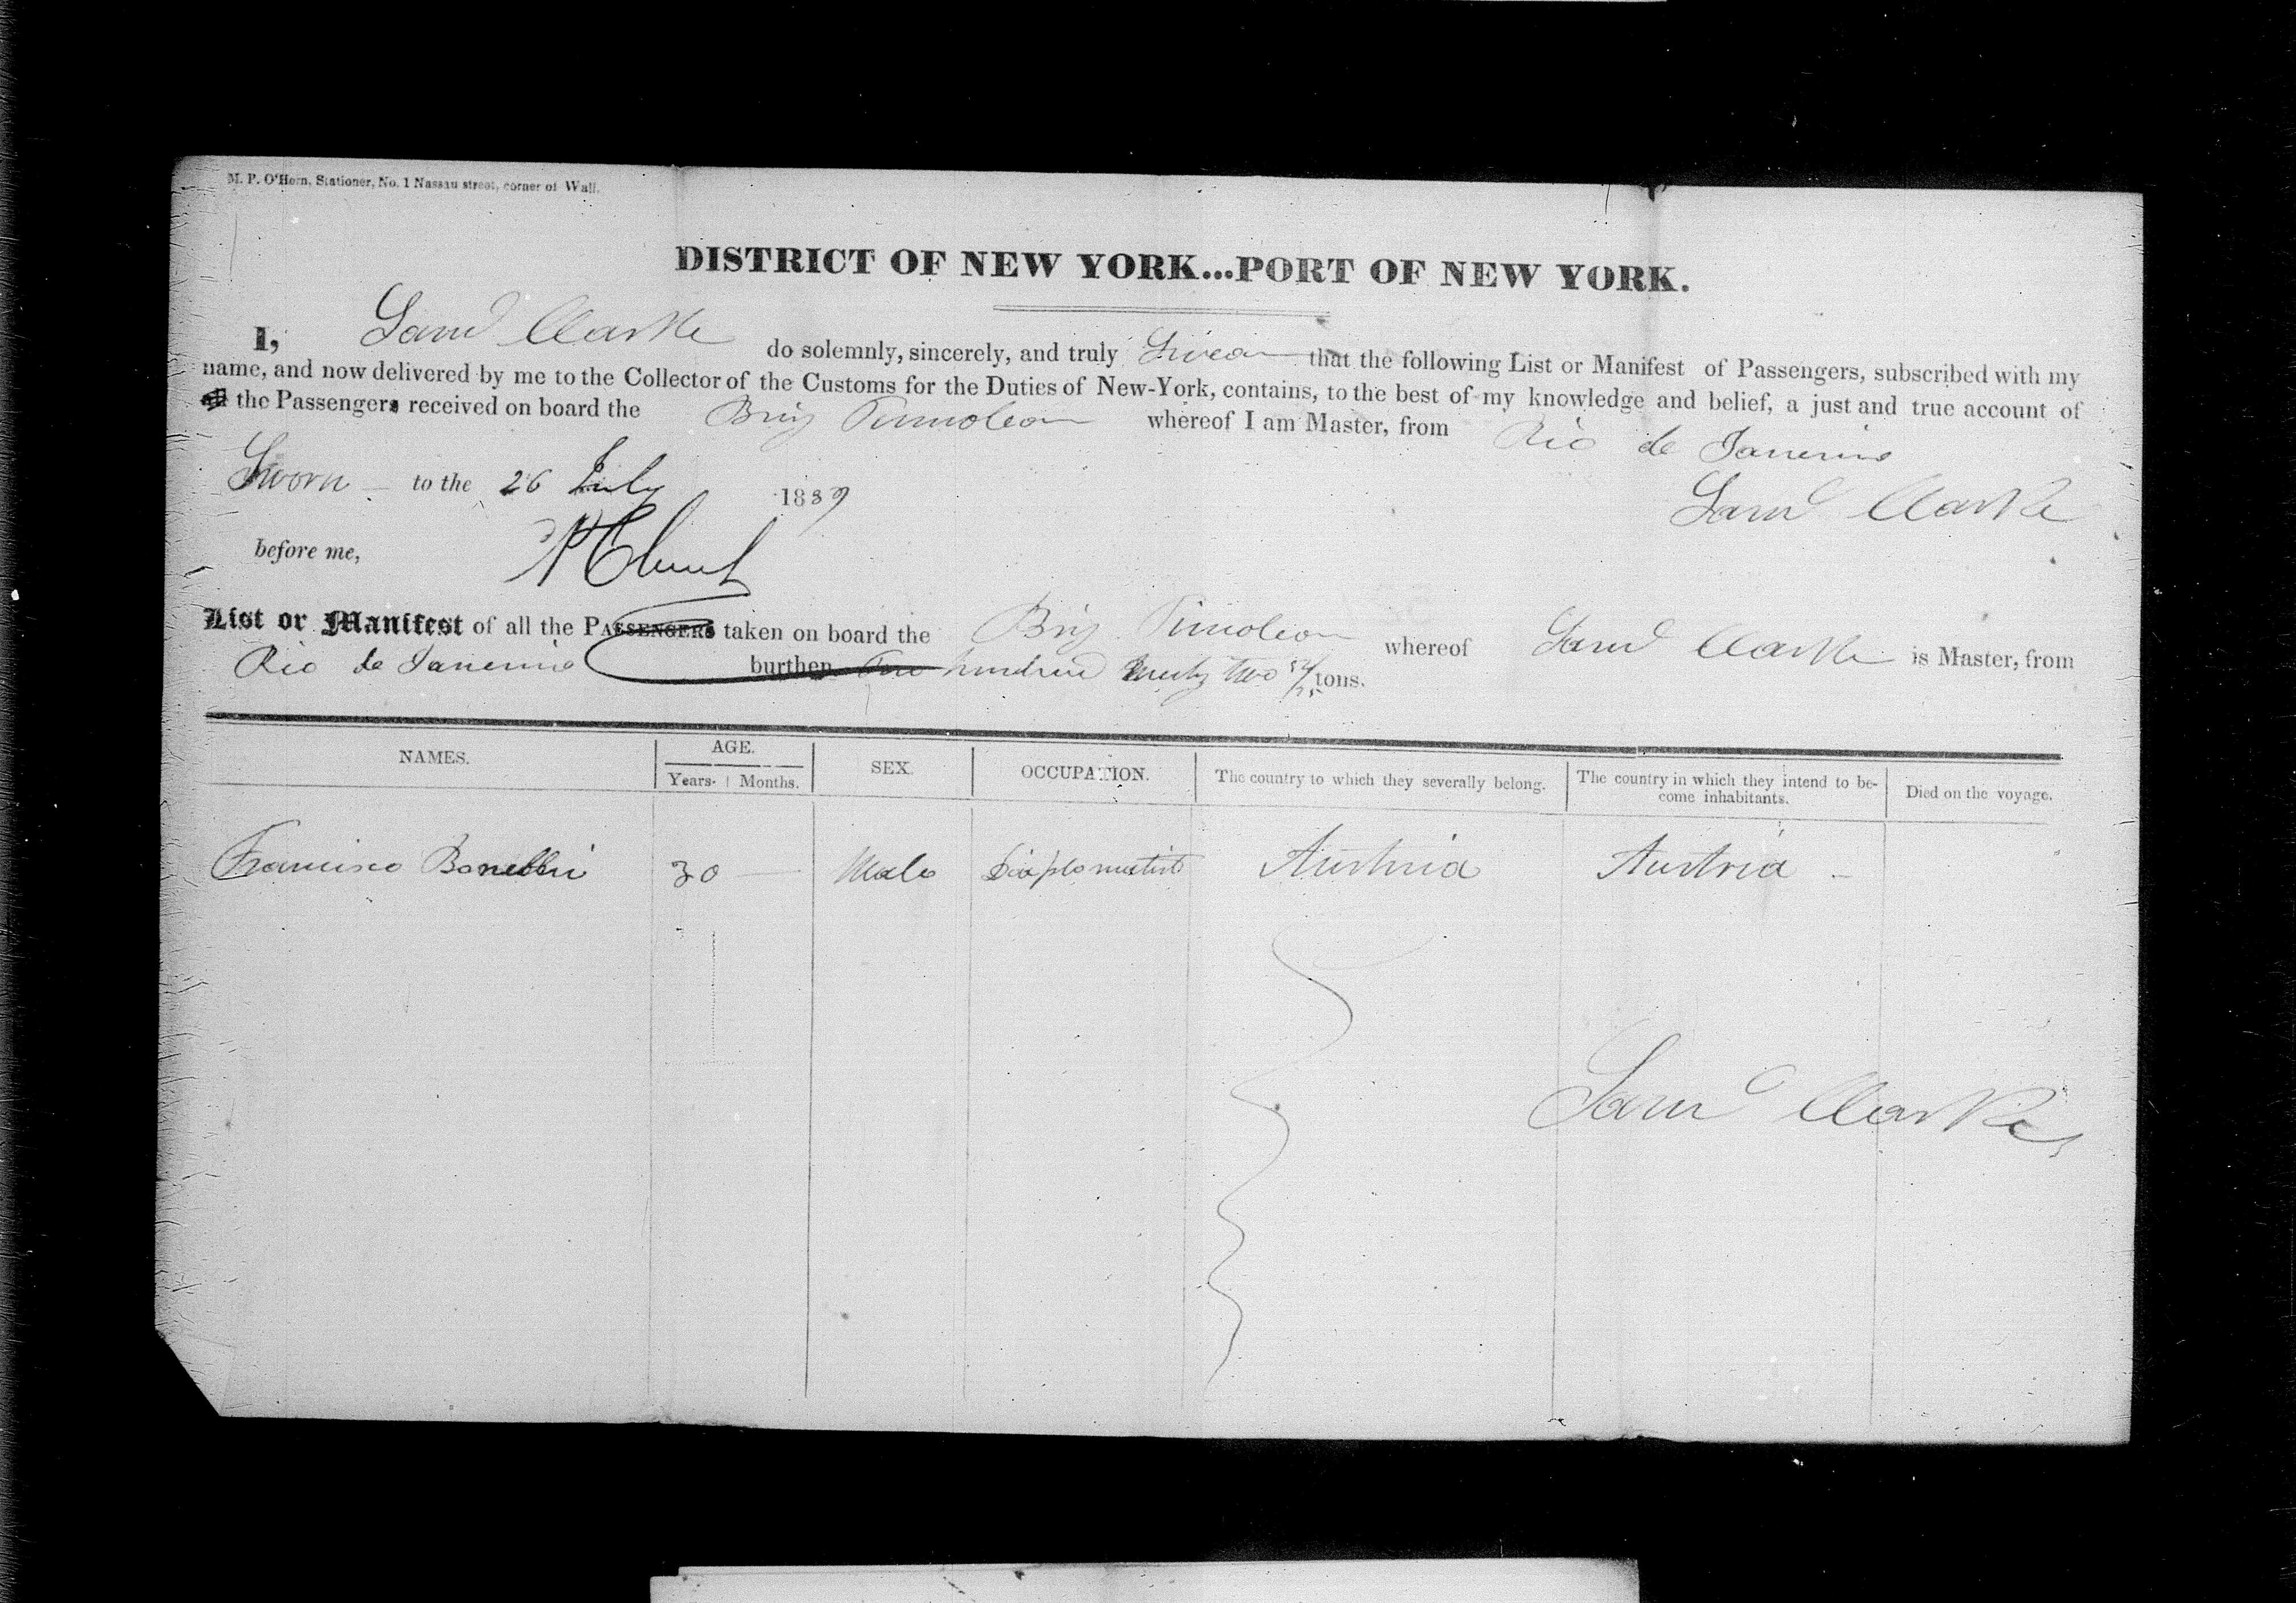 M. P. O'Hern, Stationer, No. 1 Nassau street, corner of Wall.
DISTRICT OF NEW YORK...PORT OF NEW YORK.
I, Saml Clarke do solemnly, sincerely, and truly Swear that the following List or Manifest of Passengers, subscribed with my
name, and now delivered by me to the Collector of the Customs for the Duties of New-York, contains, to the best of my knowledge and belief, a just and true account of
all the Passengers received on board the Brig Timoleon whereof I am Master, from Rio de Janeiro
Sworn to the 26 July 1839
Saml Clarke
before me,
List or Manifest of all the PASSENGERS taken on board the Brig Timoleon whereof Saml Clarke is Master, from
Rio de Janeiro burthen hundred two tons.
NAMES. AGE. SEX. OCCUPATION. The country to which they severally belong. The country in which they intend to be-
come inhabitants. Died on the voyage.
Years. Months.
Francisco 30 Male Diaplomatist Austria Austria
Saml Clarke